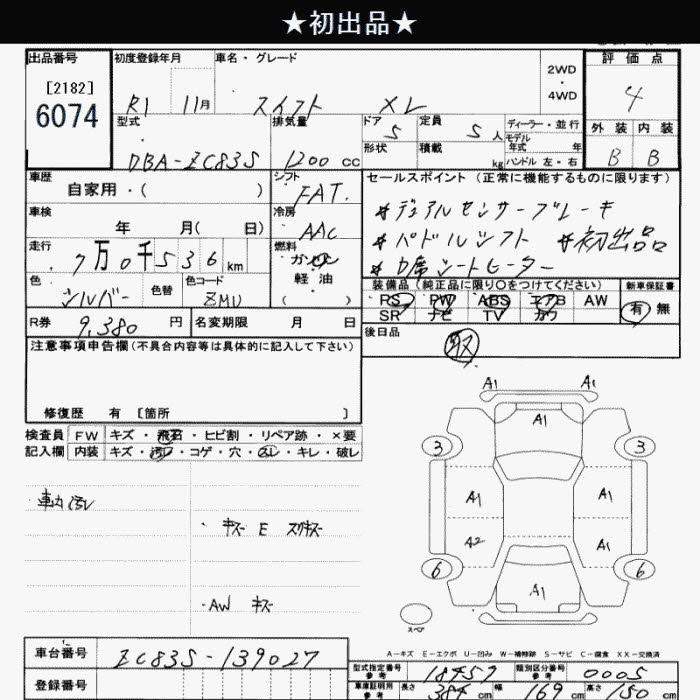 ★初出品★
出品番号 初度登録年月 車名・グレード 2WD・4WD 評価点
[2182]
6074
R1 11月 スイフト XL 4
型式 排気量 ドア 5 定員 5人 ディーラー・並行 外装 内装
DBA-ZC83S 1200 cc 形状 積載 kg モデル年式 年 ハンドル 左・右 B B
車歴 シフト セールスポイント (正常に機能するものに限ります)
自家用・( ) FAT.
車検 冷房 *デュアルセンサーブレーキ
年 月( 日) AAC *パドルシフト *初出品
走行 燃料 *D席シートヒーター
7万0千536km ガソリン
軽油
( )
色 色替 色コード 装備品 (純正品に限り○をつけてください) 新車保証書
シルバー ZMU PS PW ABS エアB AW 有 無
SR ナビ TV カワ
R券 9,380円 名変期限 月 日 後日品
注意事項申告欄 (不具合内容等は具体的に記入して下さい) 取
修復歴 有 [箇所 ]
検査員 FW キズ・飛石・ヒビ割・リペア跡・×要
記入欄 内装 キズ・汚レ・コゲ・穴・スレ・キレ・破レ
車内汚レ
・キズ E スリキズ
・AW キズ
A1 A1
A1
3 3
A1 A1
A2 A1
6 6
A1
スペア
A-キズ E-エクボ U-凹み W-補修跡 S-サビ C-腐食 XX-交換済
車台番号 ZC83S-139027
型式指定番号 参考 18457 類別区分番号 参考 0005
登録番号 車庫証明用 参考 長さ 384 cm 幅 169 cm 高さ 150 cm